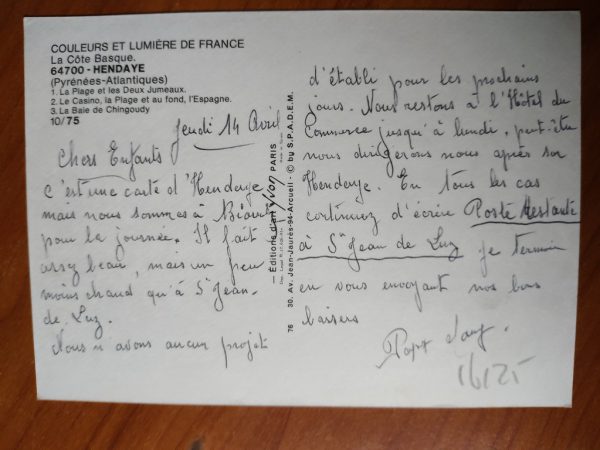 COULEURS ET LUMIÈRE DE FRANCE
La Côte Basque.
64700 - HENDAYE
(Pyrénées-Atlantiques)
1. La Plage et les Deux Jumeaux.
2. Le Casino, la Plage et au fond, l'Espagne.
3. La Baie de Chingoudy
10/75
Jeudi 14 Avril
Chers Enfants
c'est une carte d'Hendaye
mais nous sommes à
pour la journée. Il fait
assez beau, mais un peu
moins chaud qu'à St Jean-
de Luz.
Nous n'avons aucun projet
— Éditions d'art yvon PARIS
76 30. Av. Jean-Jaurès-94-Arcueil - © by S.P.A.D.E.M.
d'établi pour les prochains
jours. Nous restons à l'Hôtel du
Commerce jusqu'à lundi, peut-être
nous dirigerons nous après sur
Hendaye. En tous les cas
continuez d'écrire Poste Restante
à St Jean de Luz je termine
en vous envoyant nos bons
baisers
16125